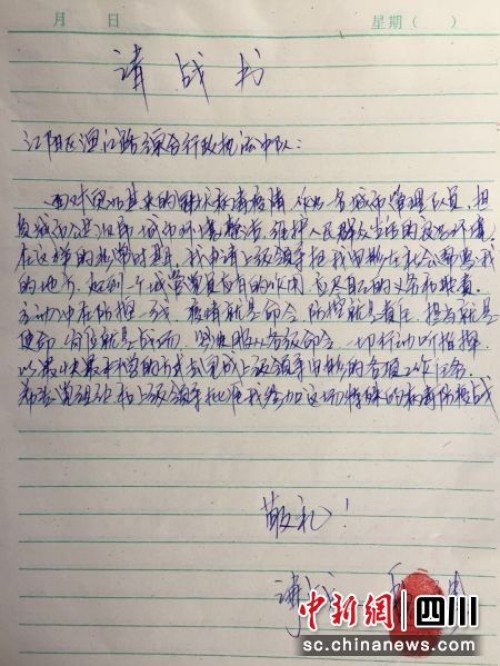 月 日 星期( )
请战书
江阳区渔江路综合行政执法中队:
面对突如其来的冠状病毒疫情,作为一名城市管理队员,担
负城市公共卫生城市环境整治,维护人民群众生活的良好环境
在这样的非常时期,我申请上级领导把我安排在社会需要我
的地方,起到一个城管党员应有的作用,应尽自己的义务和职责。
主动冲在防控一线,疫情就是命令,防控就是责任,担当就是
使命,岗位就是战场,坚决服从各级命令,一切行动听指挥,
以最快最科学的方式去完成上级领导安排的各项工作任务。
希望党组织和上级领导批准我参加这场特殊的病毒防控战
敬礼!
请战
中新网 四川
sc.chinanews.com.cn